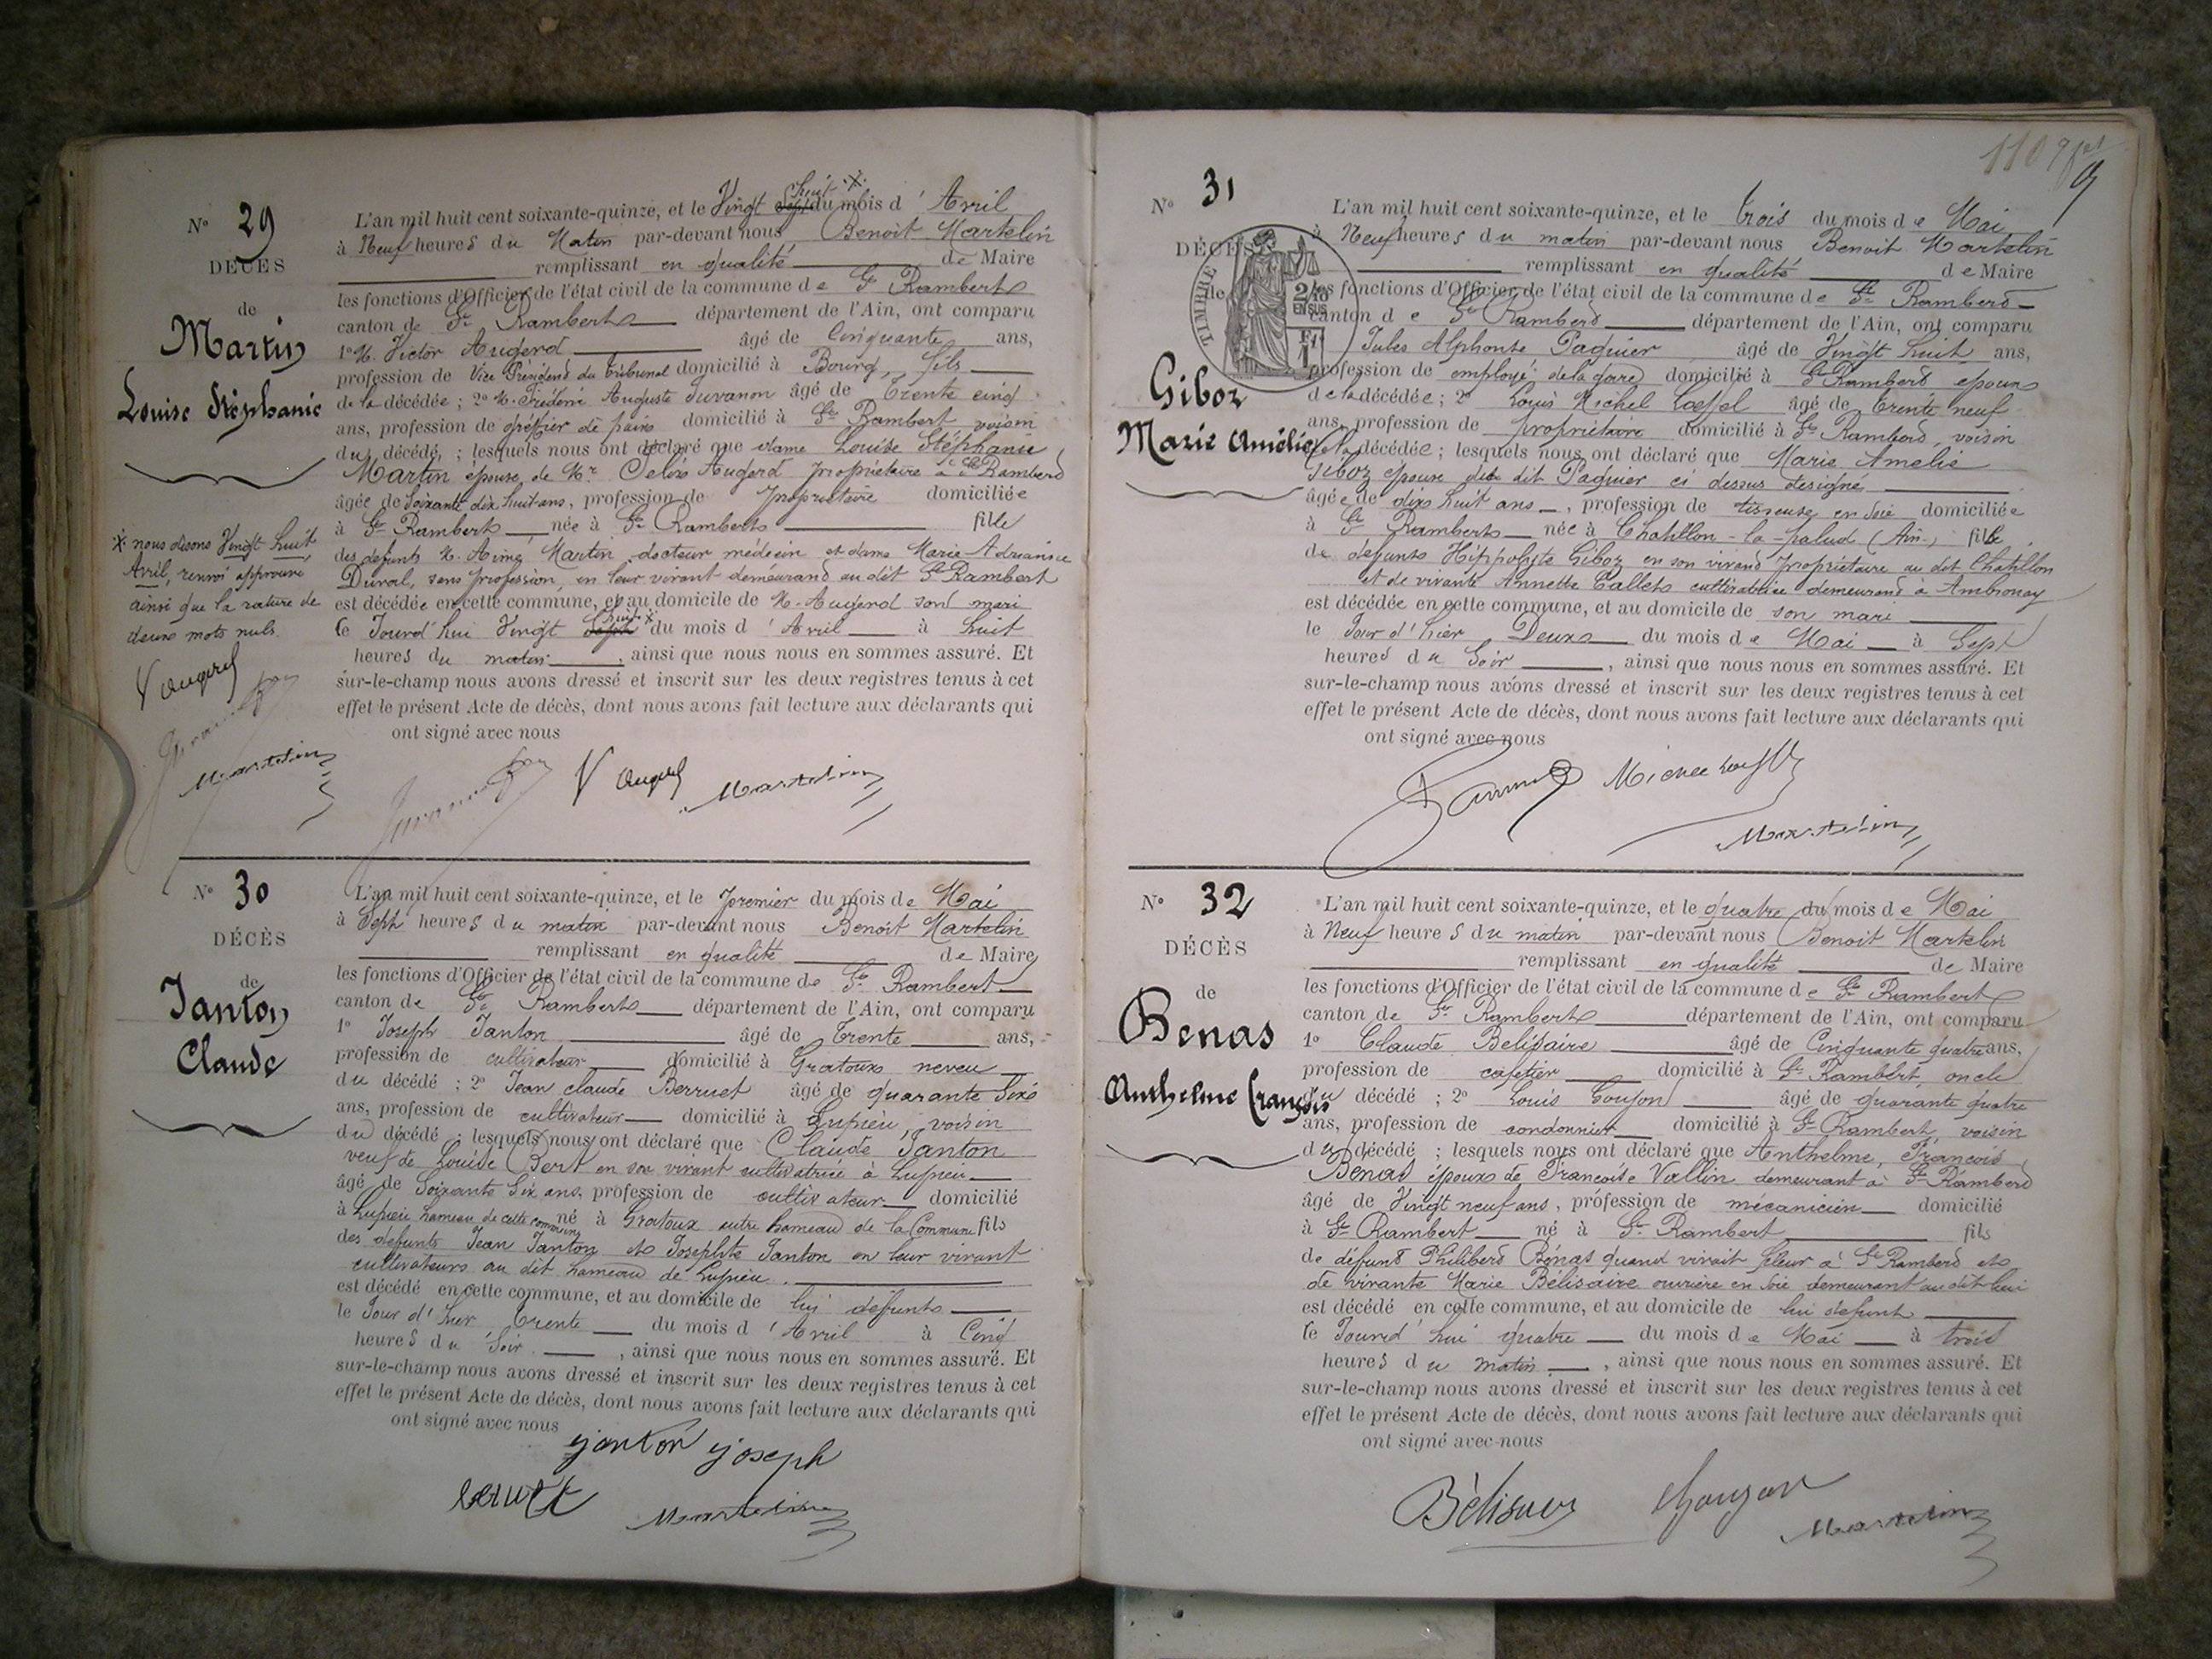 N° 29
DÉCÈS
de
Martin
Louise Stéphanie
L'an mil huit cent soixante-quinze, et le Vingt huit * du mois d'Avril
à Neuf heures du Matin par-devant nous Benoit Martelin
remplissant en qualité de Maire
les fonctions d'Officier de l'état civil de la commune de St Rambert
canton de St Rambert département de l'Ain, ont comparu
1° M. Victor Augerd âgé de Cinquante ans,
profession de Vice Président du Tribunal domicilié à Bourg, fils
de la décédée ; 2° M. Frédéric Auguste Juvanon âgé de Trente cinq
ans, profession de greffier de paix domicilié à St Rambert voisin
du décédé, ; lesquels nous ont déclaré que dame Louise Stéphanie
Martin épouse de Mr Augerd propriétaire à St Rambert
âgée de Soixante dix huit ans, profession de propriétaire domiciliée
à St Rambert née à St Rambert fille
des défunts M. Aimé Martin docteur médecin et dame Marie Adrianne
Duval, sans profession, en leur vivant demeurand au dit St Rambert
est décédée en cette commune, et au domicile de M. Augerd son mari
le Jourd'hui Vingt huit * du mois d'Avril à huit
heures du matin, ainsi que nous nous en sommes assuré. Et
sur-le-champ nous avons dressé et inscrit sur les deux registres tenus à cet
effet le présent Acte de décès, dont nous avons fait lecture aux déclarants qui
ont signé avec nous
* nous disons Vingt huit
Avril, renvoi approuvé
ainsi que la rature de
deux mots nuls.
V Augerd
Martelin
V Augerd Martelin
N° 30
DÉCÈS
de
Janton
Claude
L'an mil huit cent soixante-quinze, et le premier du mois de Mai
à Sept heures du matin par-devant nous Benoit Martelin
remplissant en qualité de Maire
les fonctions d'Officier de l'état civil de la commune de St Rambert
canton de St Rambert département de l'Ain, ont comparu
1° Joseph Janton âgé de Trente ans,
profession de cultivateur domicilié à Gratoux neveu
du décédé ; 2° Jean claude Berruet âgé de quarante Six
ans, profession de cultivateur domicilié à Lupieu, voisin
du décédé ; lesquels nous ont déclaré que Claude Janton
veuf de Louise Bert en son vivant cultivatrice à Lupieu
âgé de Soixante Six ans, profession de cultivateur domicilié
à Lupieu hameau de cette commune né à Gratoux autre hameau de la Commune fils
des défunts Jean Janton et Josephte Janton en leur vivant
cultivateurs au dit hameau de Lupieu.
est décédé en cette commune, et au domicile de lui défunt
le Jour d'hier Trente du mois d'Avril à Cinq
heures du Soir, ainsi que nous nous en sommes assuré. Et
sur-le-champ nous avons dressé et inscrit sur les deux registres tenus à cet
effet le présent Acte de décès, dont nous avons fait lecture aux déclarants qui
ont signé avec nous
janton joseph
Martelin
110
9
N° 31
DÉCÈS
de
TIMBRE
2/10
EN SUS
1
Giboz
Marie Amélie
L'an mil huit cent soixante-quinze, et le trois du mois de Mai
à Neuf heures du matin par-devant nous Benoit Martelin
remplissant en qualité de Maire
les fonctions d'Officier de l'état civil de la commune de St Rambert
canton de St Rambert département de l'Ain, ont comparu
Jules Alphonse Paquier âgé de Vingt huit ans,
profession de employé de la gare domicilié à St Rambert epoux
de la décédée ; 2° Louis Michel Loeffel âgé de trente neuf
ans, profession de propriétaire domicilié à St Rambert, voisin
de la décédée ; lesquels nous ont déclaré que Marie Amelie
Giboz epouse du dit Paquier ci dessus designé
âgée de dix huit ans, profession de tisseuse en soie domiciliée
à St Rambert née à Chatillon-la-palud (Ain) fille
de defunt Hippolyte Giboz en son vivand propriétaire au dit Chatillon
et de vivante Annette Callet cultivatrice demeurand à Ambronay
est décédée en cette commune, et au domicile de son mari
le Jour d'hier Deux du mois de Mai à Sept
heures du Soir, ainsi que nous nous en sommes assuré. Et
sur-le-champ nous avons dressé et inscrit sur les deux registres tenus à cet
effet le présent Acte de décès, dont nous avons fait lecture aux déclarants qui
ont signé avec nous
Martelin
N° 32
DÉCÈS
de
Benas
Anthelme François
L'an mil huit cent soixante-quinze, et le quatre du mois de Mai
à Neuf heures du matin par-devant nous Benoit Martelin
remplissant en qualité de Maire
les fonctions d'Officier de l'état civil de la commune de St Rambert
canton de St Rambert département de l'Ain, ont comparu
1° Claude Belisaire âgé de Cinquante quatre ans,
profession de cafetier domicilié à St Rambert, oncle
du décédé ; 2° Louis Goujon âgé de quarante quatre
ans, profession de cordonnier domicilié à St Rambert, voisin
du décédé ; lesquels nous ont déclaré que Anthelme, François
Benas époux de Françoise Vallin demeurant à St Rambert
âgé de Vingt neuf ans, profession de mécanicien domicilié
à St Rambert né à St Rambert fils
de défunt Philiberd Bénas quand vivait fileur à St Rambert et
de vivante Marie Bélisaire ouvrière en soie demeurant au dit lieu
est décédé en cette commune, et au domicile de lui défunt
le Jourd'hui quatre du mois de Mai à trois
heures du matin, ainsi que nous nous en sommes assuré. Et
sur-le-champ nous avons dressé et inscrit sur les deux registres tenus à cet
effet le présent Acte de décès, dont nous avons fait lecture aux déclarants qui
ont signé avec nous
Martelin